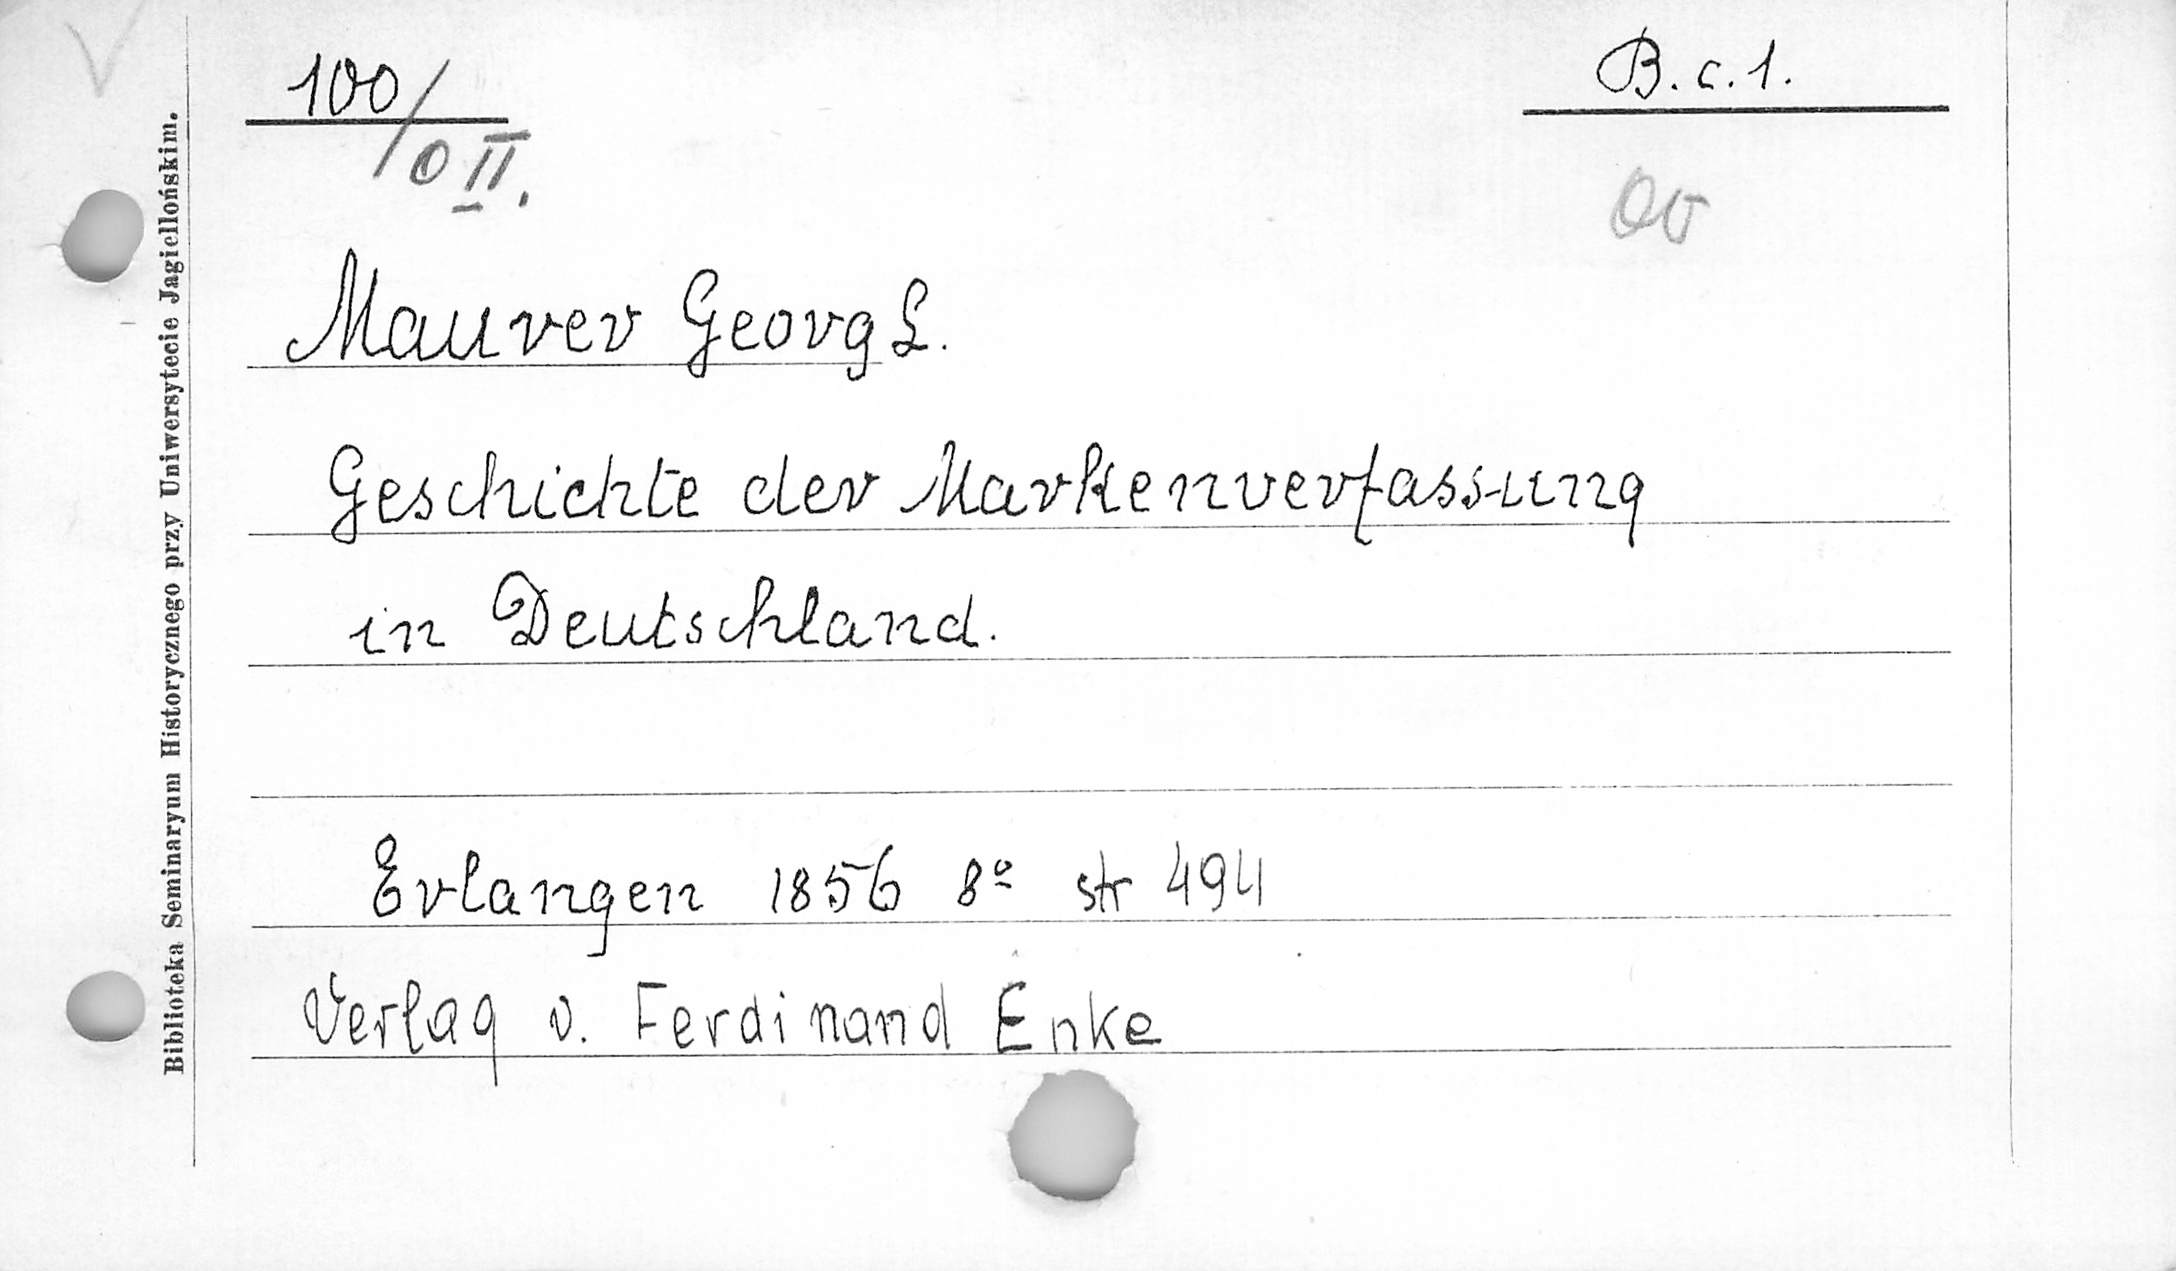 100/0 II.
B.c.1.
Maurer Georg L.
Geschichte der Markenverfassung
in Deutschland.
Erlangen 1856 8º str 494
Verlag v. Ferdinand Enke
Biblioteka Seminaryum Historycznego przy Uniwersytecie Jagiellońskim.